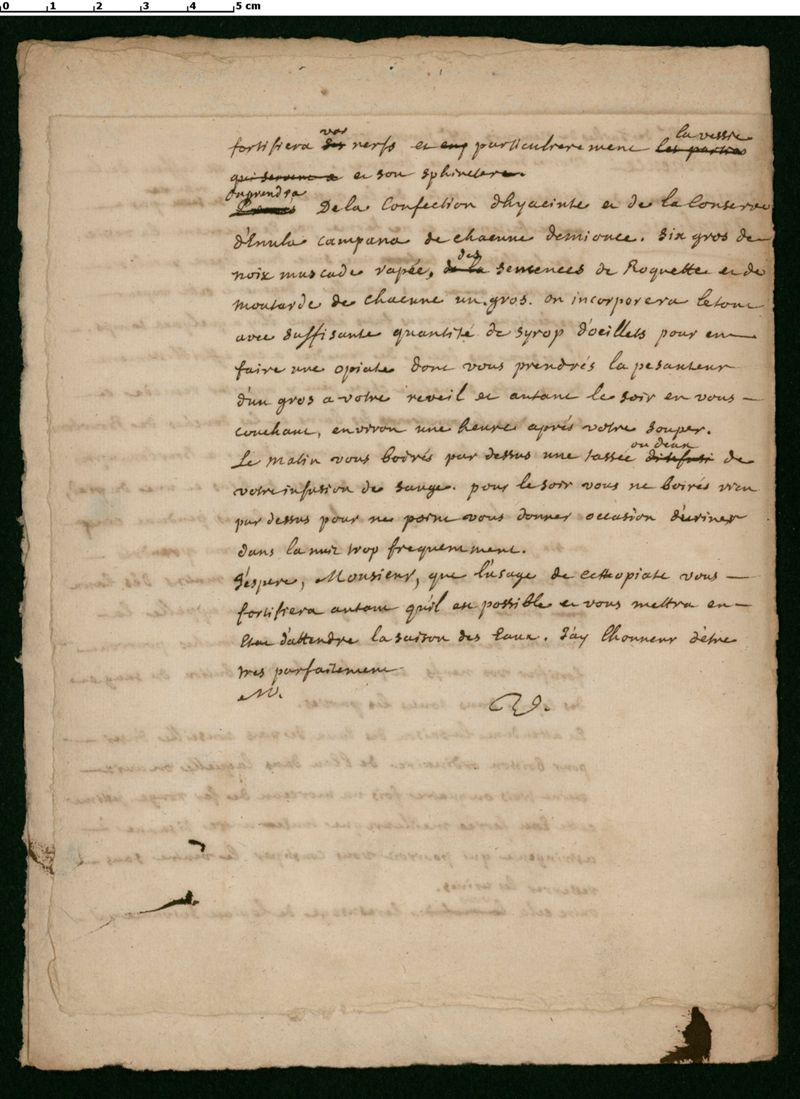 0 1 2 3 4 5 cm
vos la vessie
fortifiera ses nerfs et enp particulierement les parties
qui servent a et son sphinctere.
on prendra
Prenes De la Confection dhyacinte et de la Conserve
d'Enula campana de chacune demionce. Six gros de
des
noix muscade rapée, de la semences de Roquette et de
moutarde de chacune un gros. on incorporera letout
avec suffisante quantité de syrop d'oeillets pour en
faire une opiate dont vous prendrés la pesanteur
d'un gros a votre reveil et autant le soir en vous
couchant, environ une heure aprés votre souper.
ou deux
Le matin vous boirés par dessus une tassée de
votre infusion de sauge. pour le soir vous ne boirés rien
par dessus pour ne point vous donner occasion d'uriner
dans la nuit trop frequemment.
J'espere, Monsieur, que l'usage de cette opiate vous
fortifiera autant qu'il est possible et vous mettra en
Etat d'attendre la saison des Eaux. J'ay l'honneur d'être
tres parfaitement
M.